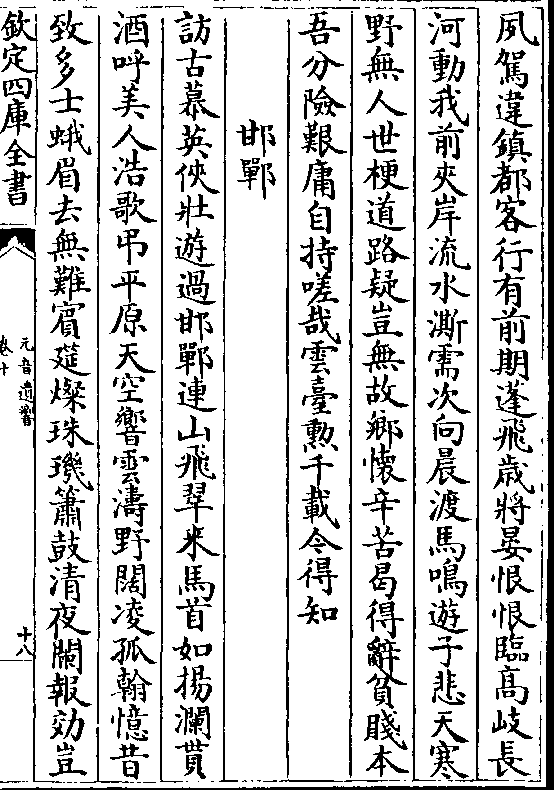 夙駕違鎮都客行有前期蓬飛歲將晏悢悢臨高岐長
河動我前夾岸流水澌需次向晨渡馬鳴遊子悲天寒
野無人世梗道路疑豈無故鄉懷辛苦曷得辭負賤本
吾分險艱庸自持嗟哉雲臺勲千載令得知
邯鄲
訪古慕英俠壯遊過邯鄲連山飛翠來馬首如揚瀾貰
酒呼美人浩歌弔平原天空響雲濤野闊凌孤翰憶昔
致多士蛾眉去無難賓筵燦珠璣簫鼓清夜闌報効豈
欽定四庫全書
元音遺響
卷十
十八